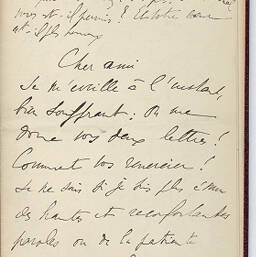 vous est-il permis? Et votre
est-il plus heureux
Cher ami
Je m'éveille à l'instant,
bien souffrant; On me
donne vos deux lettres!
Comment vous remercier!
Je ne sais si je suis plus ému
des hautes et réconfortantes
paroles ou de la patiente